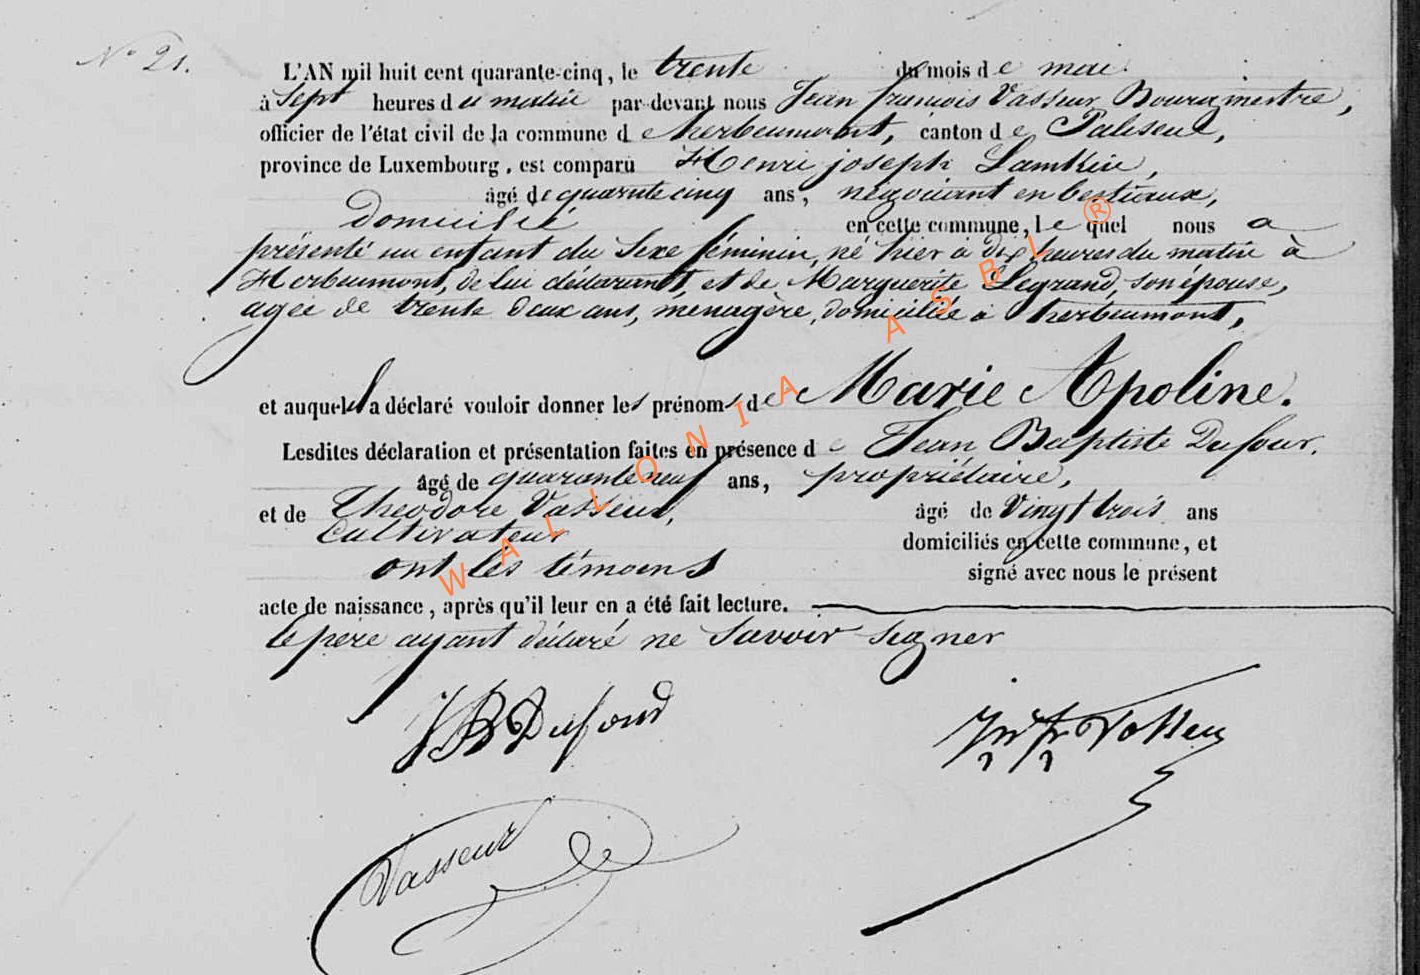 N° 21.
L'AN mil huit cent quarante-cinq, le trente du mois de mai
à Sept heures du matin par devant nous Jean françois Vasseur Bourgmestre,
officier de l'état civil de la commune de herbeumont, canton de Paliseul,
province de Luxembourg, est comparu Henri joseph Lamkin,
âgé de quarante cinq ans, négociant en bestiaux,
domicilié en cette commune, lequel nous a
présenté un enfant du Sexe féminin, né hier à dix heures du matin à
Herbeumont, de lui déclarant, et de Marguerite Legrand, son épouse,
agée de trente deux ans, menagère, domiciliée a herbeumont,
et auquel il a déclaré vouloir donner les prénoms de Marie Apoline.
Lesdites déclaration et présentation faites en présence de Jean Baptiste Dufour,
âgé de quarante neuf ans, propriétaire,
et de Théodore Vasseur, âgé de Vingt trois ans
Cultivateur domiciliés en cette commune, et
ont les témoins signé avec nous le présent
acte de naissance, après qu'il leur en a été fait lecture.
le père ayant déclaré ne Savoir Segner
JB Dufour
Vasseur
WALLONIA ASBL ®